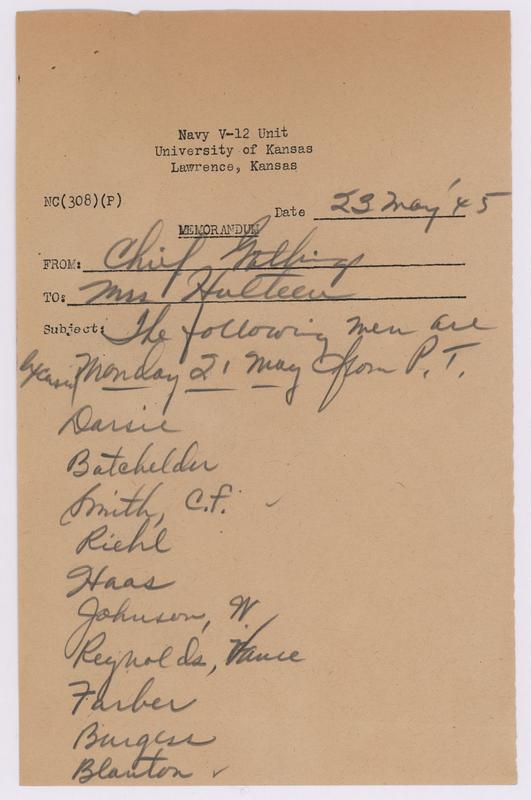 Navy V-12 Unit
University of Kansas
Lawrence, Kansas
NC(308)(P)
Date 23 May '45
MEMORANDUM
FROM: Chief
TO: Mrs Hulteen
Subject: The following men are
excused Monday 21 May from P.T.
Darsie
Batchelder
Smith, C.F.
Riehl
Haas
Johnson, W.
Reynolds, Vance
Farber
Burgess
Blanton